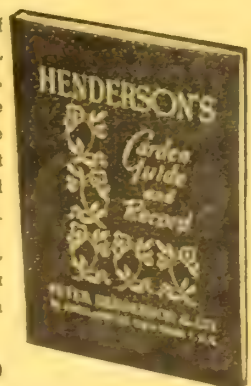 HENDERSON'S
Garden
Guide
and
Record
PETER HENDERSON & CO.